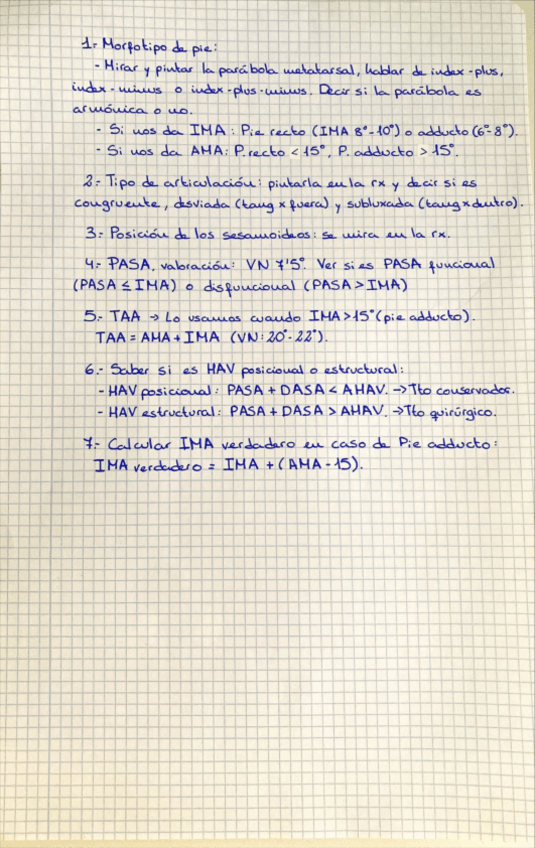 1.- Morfotipo de pie:
- Mirar y pintar la parábola metatarsal, hablar de index-plus,
index-minus o index-plus-minus. Decir si la parábola es
armónica o no.
- Si nos da IMA: Pie recto (IMA 8°-10°) o adducto (6°-8°).
- Si nos da AMA: P. recto < 15°, P. adducto > 15°.
2.- Tipo de articulación: pintarla en la rx y decir si es
congruente, desviada (tang x fuera) y subluxada (tang x dentro).
3.- Posición de los sesamoideos: se mira en la rx.
4.- PASA, valoración: VN 7'5°. Ver si es PASA funcional
(PASA ≤ IMA) o disfuncional (PASA > IMA)
5.- TAA → Lo usamos cuando IMA > 15° (pie adducto).
TAA = AMA + IMA (VN: 20°-22°).
6.- Saber si es HAV posicional o estructural:
- HAV posicional: PASA + DASA < AHAV. → Tto conservador.
- HAV estructural: PASA + DASA > AHAV. → Tto quirúrgico.
7.- Calcular IMA verdadero en caso de Pie adducto:
IMA verdadero = IMA + (AMA - 15).